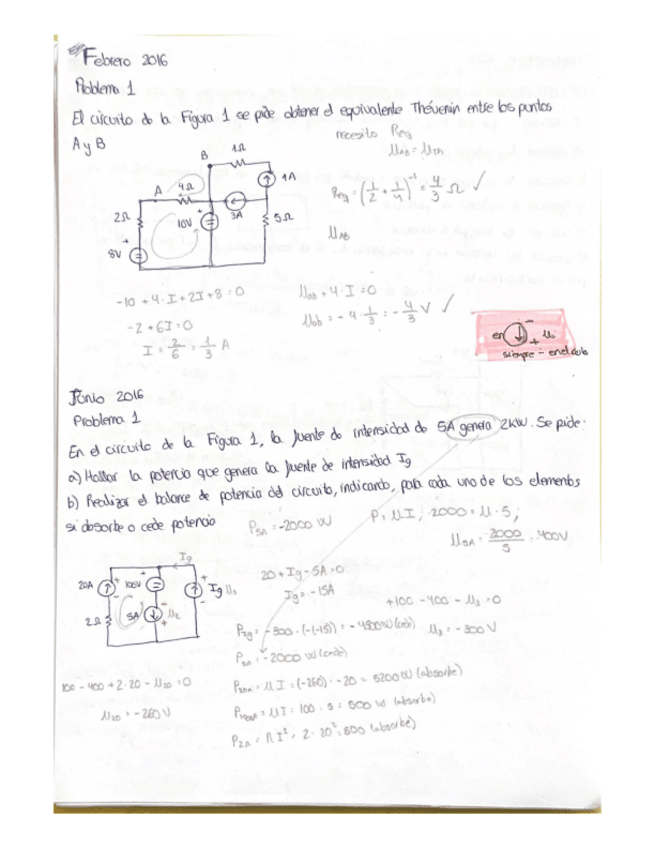 Febrero 2016
Problema 1
El circuito de la Figura 1 se pide obtener el equivalente Thévenin entre los puntos
A y B
necesito Req
U_AB = U_th
B
1Ω
1A
A
4Ω
Req = (1/2 + 1/4)^-1 = 4/3 Ω ✓
2Ω
10V
3A
5Ω
8V
U_AB
-10 + 4·I + 2I + 8 = 0
-2 + 6I = 0
I = 2/6 = 1/3 A
U_ab + 4·I = 0
U_ab = -4·1/3 = -4/3 V ✓
en
siempre - en el
Junio 2016
Problema 1
En el circuito de la Figura 1, la fuente de intensidad de 5A genera 2kW. Se pide:
a) Hallar la potencia que genera la fuente de intensidad Ig
b) Realizar el balance de potencia del circuito, indicando, para cada uno de los elementos
si absorbe o cede potencia
P_5A = -2000 W
P = U·I ; 2000 = U·5 ;
U_5A = 2000/5 = 400V
Ig
20A
100V
Ig U_3
2Ω
5A
U_2
20 + Ig - 5A = 0
Ig = -15A
+100 - 400 - U_3 = 0
U_3 = -300 V
P_Ig = -300·(-(-15)) = -4500W (cede)
P_5A = -2000 W (cede)
100 - 400 + 2·20 - U_20 = 0
U_20 = -260 V
P_20A = U·I = (-260)·-20 = 5200W (absorbe)
P_100V = U·I = 100·5 = 500 W (absorbe)
P_2Ω = R·I² = 2·20² = 800 (absorbe)